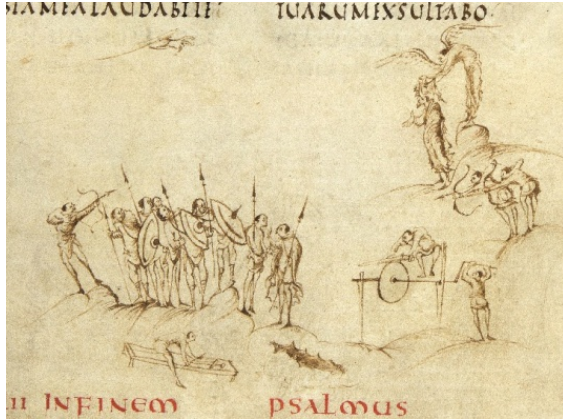 BIAMEALAUDABITE: TUARUMEXSULTABO·
II INFINEM PSALMUS